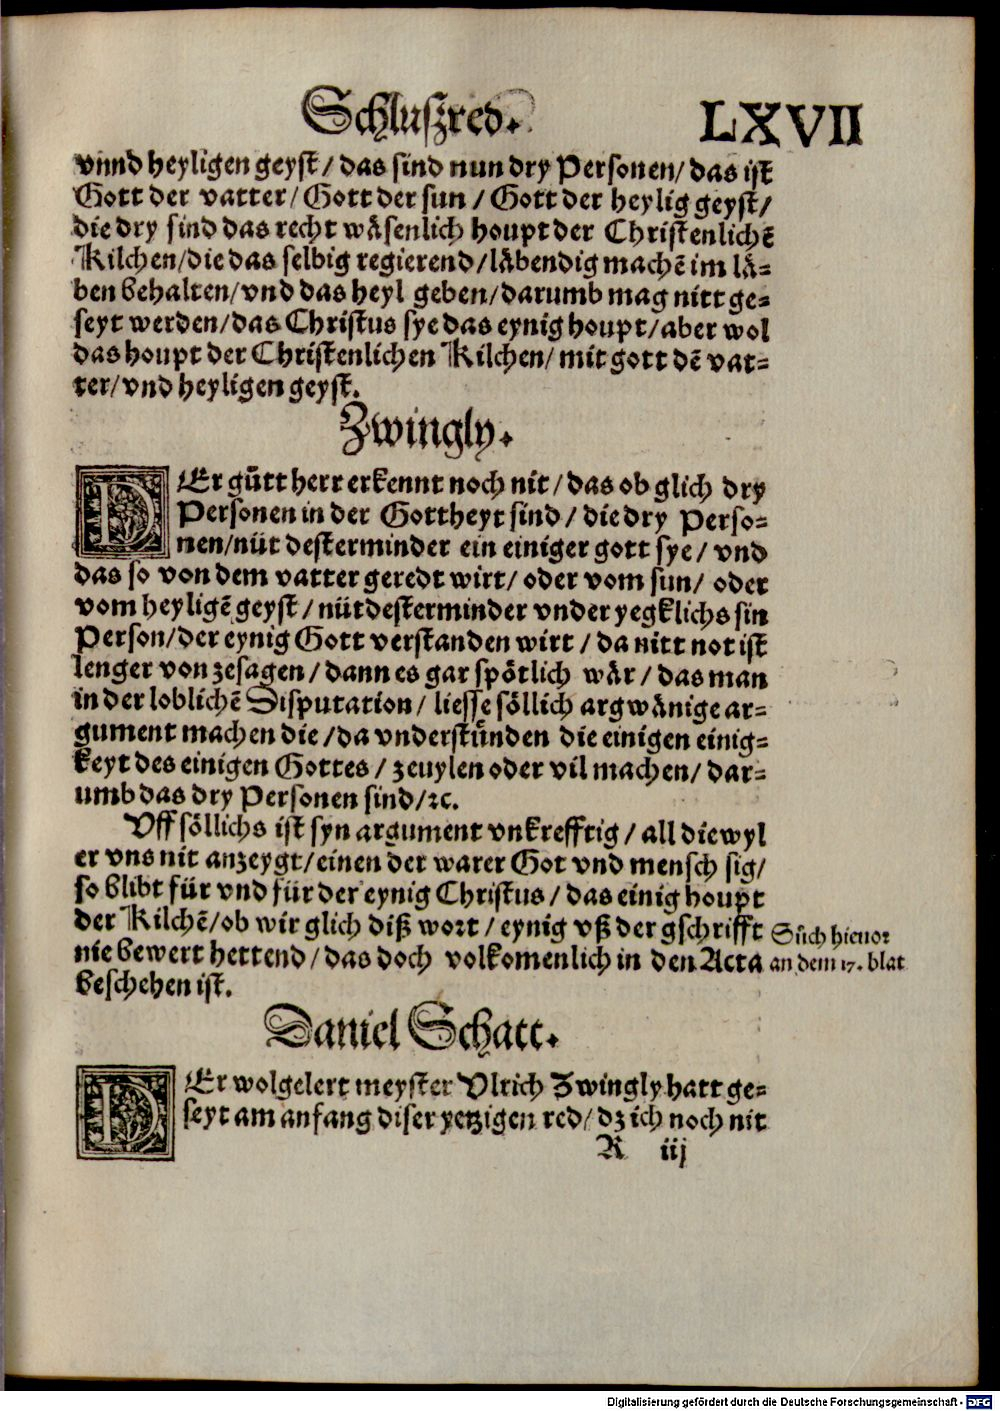 Schluszred.
LXVII
vnnd heyligen geyst / das sind nun dry Personen / das ist
Gott der vatter / Gott der sun / Gott der heylig geyst /
die dry sind das recht wäsenlich houpt der Christenlichē
Kilchen / die das selbig regierend / läbendig machē im lä-
ben behalten / vnd das heyl geben / darumb mag nitt ge-
seyt werden / das Christus sye das eynig houpt / aber wol
das houpt der Christenlichen Kilchen / mit gott dē vat-
ter / vnd heyligen geyst.
Zwingly.
DEr gůtt herr erkennt noch nit / das ob glich dry
Personen in der Gottheyt sind / die dry Perso-
nen / nüt desterminder ein einiger gott sye / vnd
das so von dem vatter geredt wirt / oder vom sun / oder
vom heyligē geyst / nüt desterminder vnder yegklichs sin
Person / der eynig Gott verstanden wirt / da nitt not ist
lenger von zesagen / dann es gar spötlich wär / das man
in der loblichē Disputation / liesse söllich argwänige ar-
gument machen die / da vnderstůnden die einigen einig-
keyt des einigen Gottes / zeuylen oder vil machen / dar-
umb das dry Personen sind / ꝛc.
Vff söllichs ist syn argument vnkrefftig / all diewyl
er vns nit anzeygt / einen der warer Got vnd mensch sig /
so blibt für vnd für der eynig Christus / das einig houpt
der Kilchē / ob wir glich diß wort / eynig vß der gschrifft
nie bewert hettend / das doch volkomenlich in den Acta
beschehen ist.
Sůch hieuor
an dem 17. blat
Daniel Schatt.
DEr wolgelert meyster Vlrich Zwingly hatt ge-
seyt am anfang diser yetzigen red / dz ich noch nit
R iij
Digitalisierung gefördert durch die Deutsche Forschungsgemeinschaft - DFG